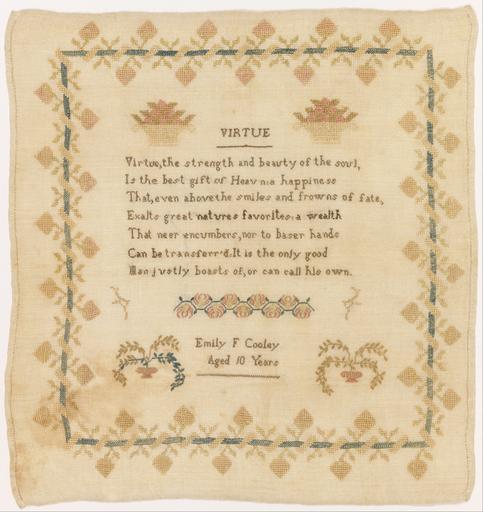 VIRTUE
Virtue,the strength and beauty of the soul,
Is the best gift of Heavnia happiness
That,even above the smiles and frowns of fate,
Exalts great natures favorites:a wealth
That neer encumbers,nor to baser hands
Can be transferr'd.It is the only good
Man justly boasts of,or can call his own.
Emily F Cooley
Aged 10 Years